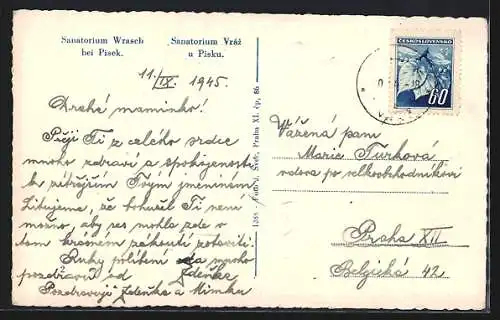 Sanatorium Wrasch
bei Pisek.
Sanatorium Vráž
u Písku.
11./IX. 1945.
Drahé maminko!
Přeji Ti z celého srdce
mnoho zdraví a spokojenosti
k zítřejším Tvým jmeninám
Litujeme, že bohužel Ti není
možno, aby ses mohla zde v
tom krásném zákoutí zotaviti.
Ruky políbení a mnoho
pozdravů od Zdeňka
Pozdravují Zdeňka a Mimka
Foto J. Šmit, Praha XI. čp. 86
ČESKOSLOVENSKO
60
Vážená paní
Marie Turková
vdova po velkoobchodníkovi
Praha XII
Belgická 42.